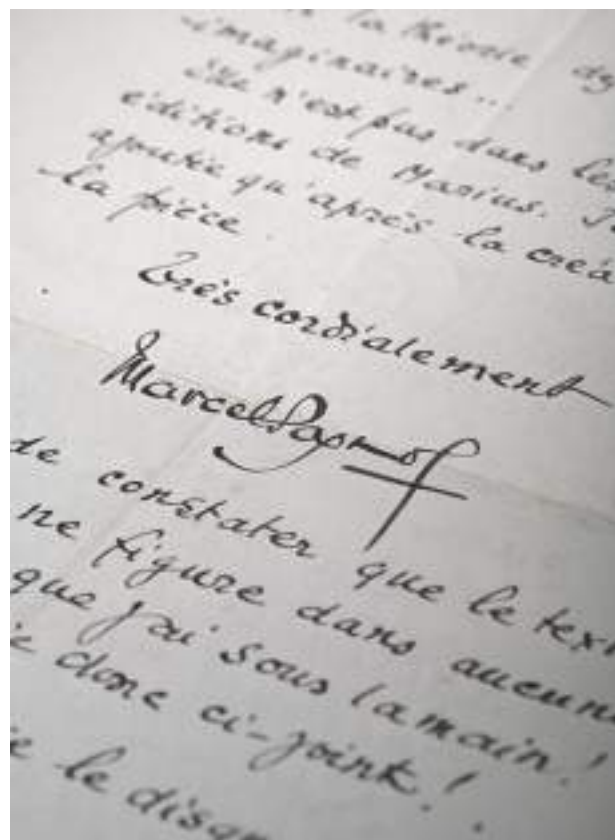 la théorie
imaginaires...
Elle n'est pas dans les
éditions de Marius.
ajoutée qu'après la créa
la pièce.
Très cordialement
Marcel Pagnol
de constater que le tex
ne figure dans aucun
que j'ai sous la main!
donc ci-joint!
le